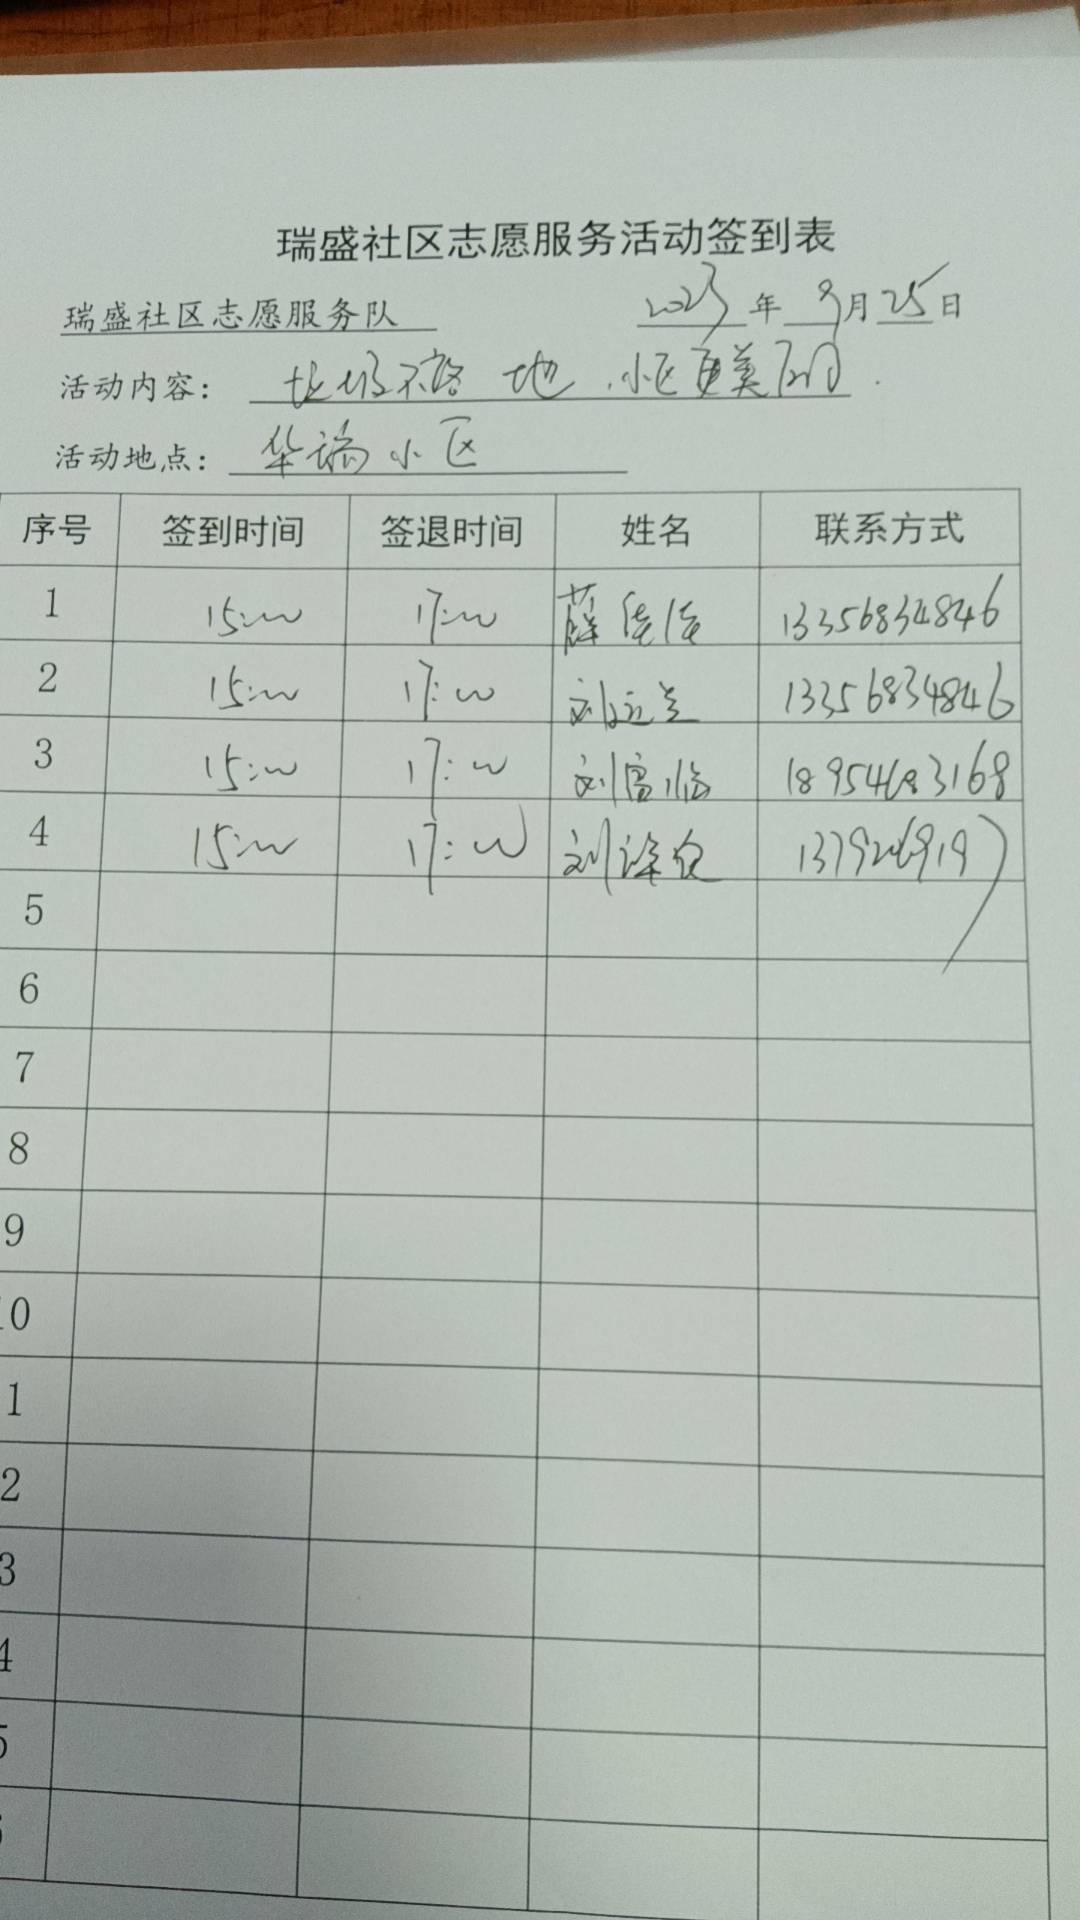 瑞盛社区志愿服务活动签到表
瑞盛社区志愿服务队 2023年 9月 25日
活动内容： 垃圾不落地.小区更美丽
活动地点： 华瑞小区
序号 签到时间 签退时间 姓名 联系方式
1 15:00 17:00 薛佳佳 13356834846
2 15:00 17:00 刘 13356834846
3 15:00 17:00 刘富临 18954683168
4 15:00 17:00 刘
5
6
7
8
9
10
1
2
3
4
5